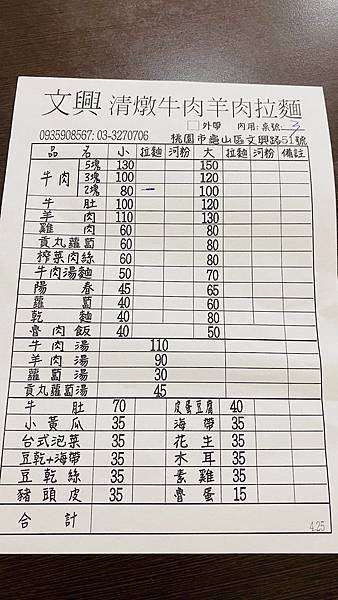 文興 清燉牛肉羊肉拉麵
外帶 內用: 桌號: 3
0935908567: 03-3270706 桃園市龜山區文興路51號
品名 小 拉麵 河粉 大 拉麵 河粉 備註
牛肉 5塊 130 150
3塊 100 120
2塊 80 一 100
牛肚 100 120
羊肉 110 130
雞肉 60 80
貢丸蘿蔔 60 80
榨菜肉絲 60 80
牛肉湯麵 50 70
陽春 45 65
蘿蔔 40 60
乾麵 40 80
魯肉飯 40 50
牛肉湯 110
羊肉湯 90
蘿蔔湯 30
貢丸蘿蔔湯 45
牛肚 70 皮蛋豆腐 40
小黃瓜 35 海帶 35
台式泡菜 35 花生 35
豆乾+海帶 35 木耳 35
豆乾絲 35 素雞 35
豬頭皮 35 魯蛋 15
合計
4.25